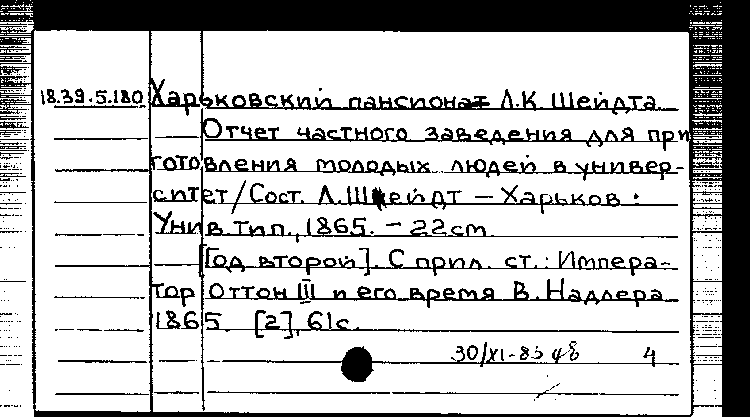 18.39.5.180 Харьковский пансионат Л.К Шейдта
Отчет частного заведения для при
готовления молодых людей в универ-
ситет/Сост. Л.Шейдт — Харьков :
Унив.тип., 1865. – 22см.
[Год второй]. С прил. ст.: Импера-
тор Оттон III и его время В. Надлера
1865. [2], 61с.
30/XI-83 4